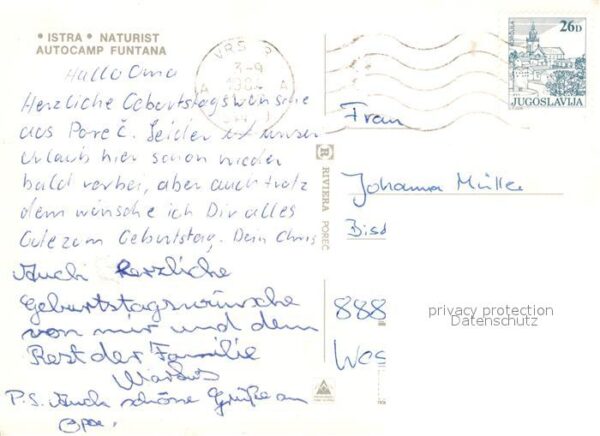 • ISTRA • NATURIST
AUTOCAMP FUNTANA
Hallo Oma
Herzliche Geburtstagswünsche
aus Poreč. Leider ist unser
Urlaub hier schon wieder
bald vorbei, aber auch trotz
dem wünsche ich Dir alles
Gute zum Geburtstag. Dein Chris
Auch herzliche
Geburtstagswünsche
von mir und dem
Rest der Familie
Markus
P.S. Auch schöne Grüße an
Opa.
VRSAR
26D
JUGOSLAVIJA
RIVIERA POREČ
Frau
Johanna Müller
888
privacy protection
Datenschutz
Wes